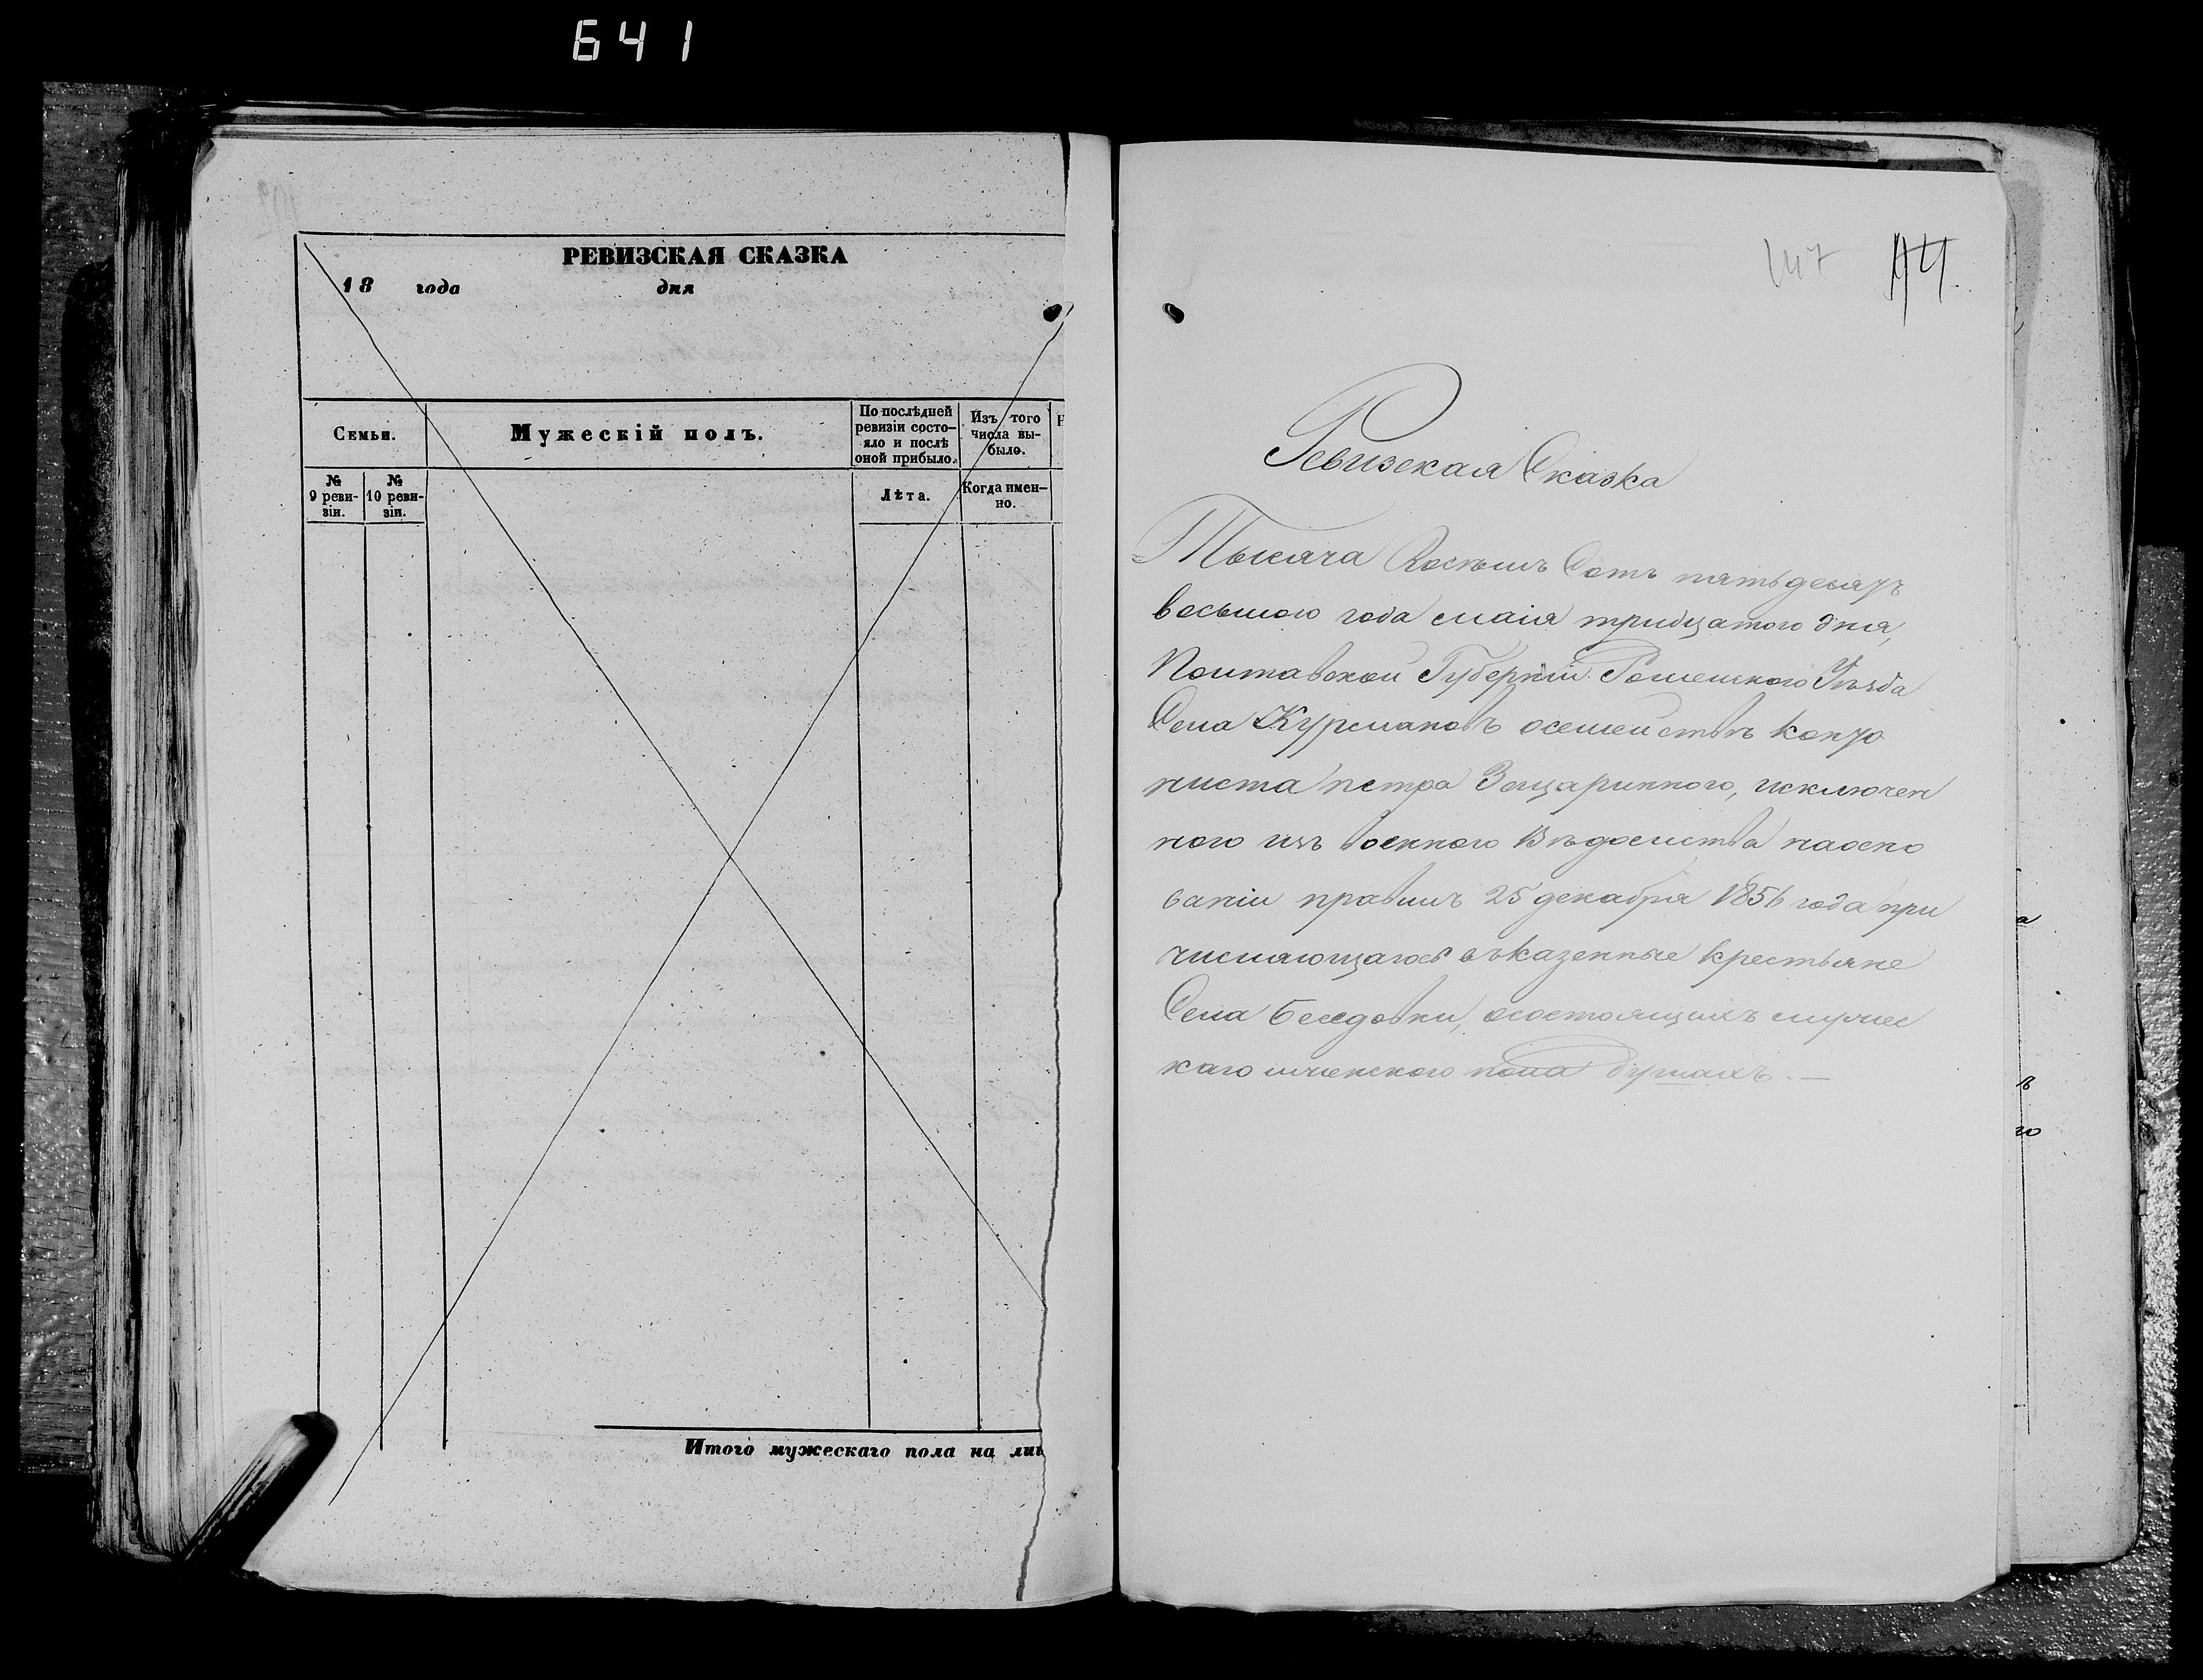 641
РЕВИЗСКАЯ СКАЗКА
18 года дня
Семьи.
Мужескій полъ.
По послѣдней ревизіи состо-
яло и послѣ
оной прибыло.
Изъ того
числа вы-
было.
№ 9 реви-
зіи.
№ 10 реви-
зіи.
Лѣта.
Когда имен-
но.
Итого мужескаго пола на
147
Ревизская Сказка
Тысяча Восемь Сотъ пятьдесятъ
восьмого года маія тридцатого дня,
Полтавской Губерніи Роменского Уѣзда
Села Курмановъ осемействѣ канто
ниста петра Защаринного, исключен
ного изъ военного Вѣдомства наосно
ваніи правилъ 25 декабря 1856 года при
числяющагось въказенные крестьяне
Села Беседовки, осостоящихъ мужес
каго иженского пола душахъ. —